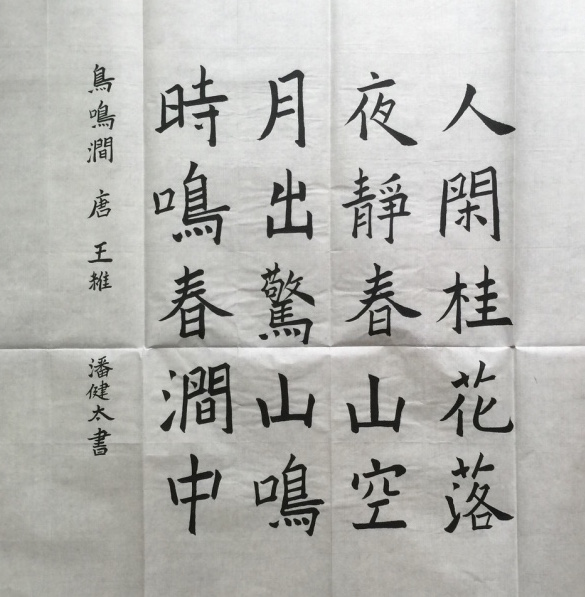 人閑桂花落
夜靜春山空
月出驚山鳴
時鳴春澗中
鳥鳴澗 唐 王維 潘健太書